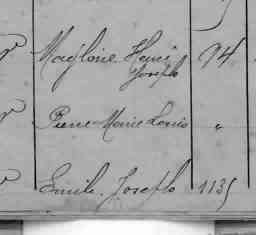 Magloire Henri 94
Joseph
Pierre Marie Louis "
Emile Joseph 1135